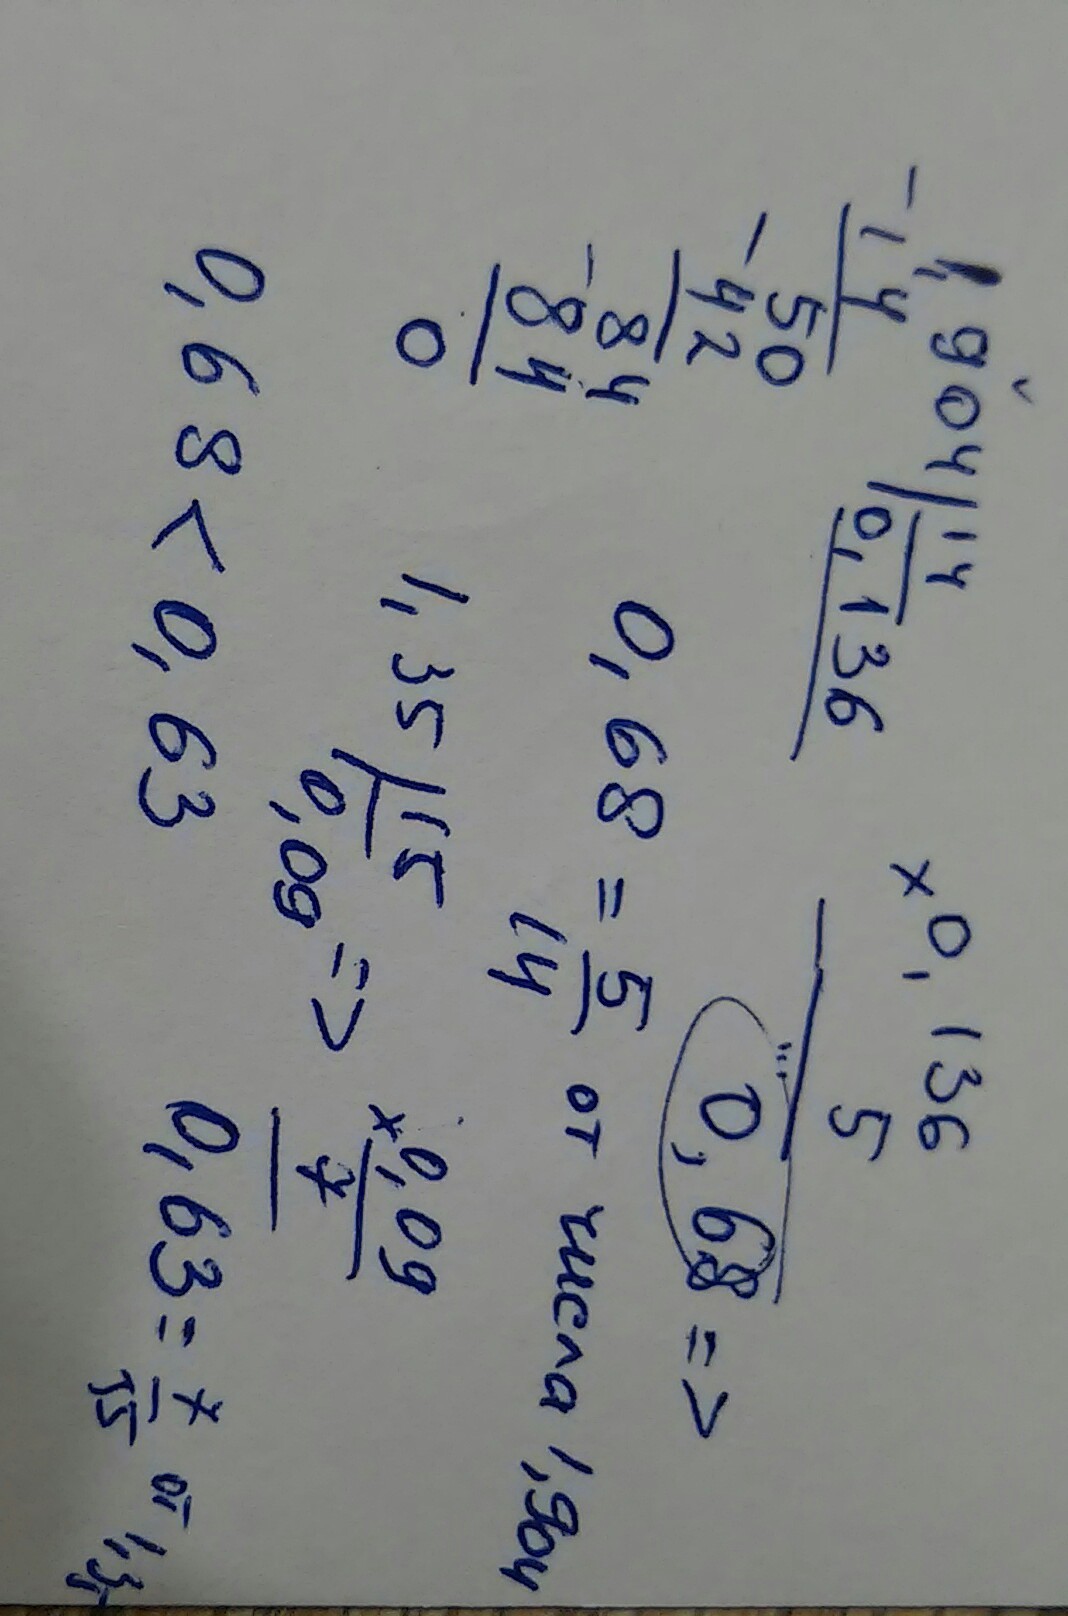 1,904 | 14 × 0,136
-14 | 0,136 5
50 0,68 =>
-42
84 0,68 = 5/14 от числа 1,904
-84
0 1,35 | 15 × 0,09
0,09 => 7
0,68 < 0,63 0,63 = 7/15 от 1,35